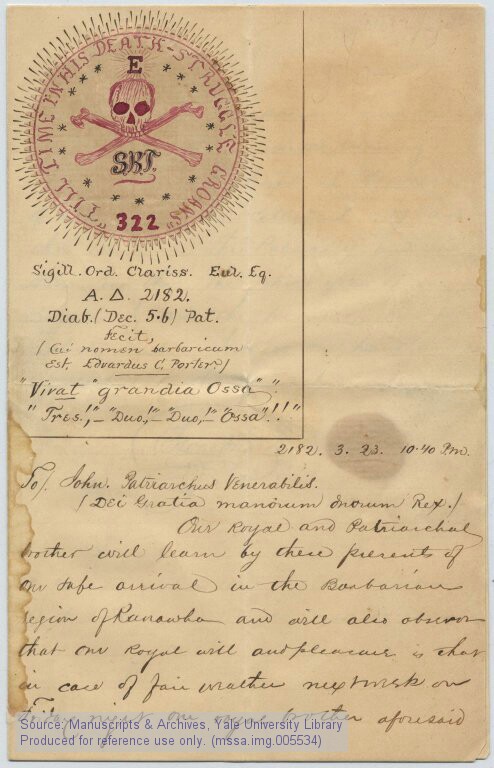 "TILL TIME IN HIS DEATH-STRUGGLE GROANS"
E
S.B.T.
322
Sigill. Ord. Clariss. Eul. Eq.
A. Δ. 2182.
Diab. (Dec. 5.6) Pat.
fecit,
(Cui nomen barbaricum
Est, Edvardus C. Porter.)
"Vivat "grandia Ossa""
"Tres,!"_ "Duo,!"_ "Duo,!"_ "Ossa"!!"
2182. 3. 23. 10.40 Pm.
To/. John. Patriarchus Venerabilis.
(Dei Gratia manorum Rex.)
Our Royal and Patriarchal
brother will learn by these presents of
our safe arrival in the Barbarian
region of Kanawha and will also observe
that our Royal will and pleasure is that
in case of fair weather next week on
Friday night our royal brother aforesaid
Source: Manuscripts & Archives, Yale University Library
Produced for reference use only. (mssa.img.005534)